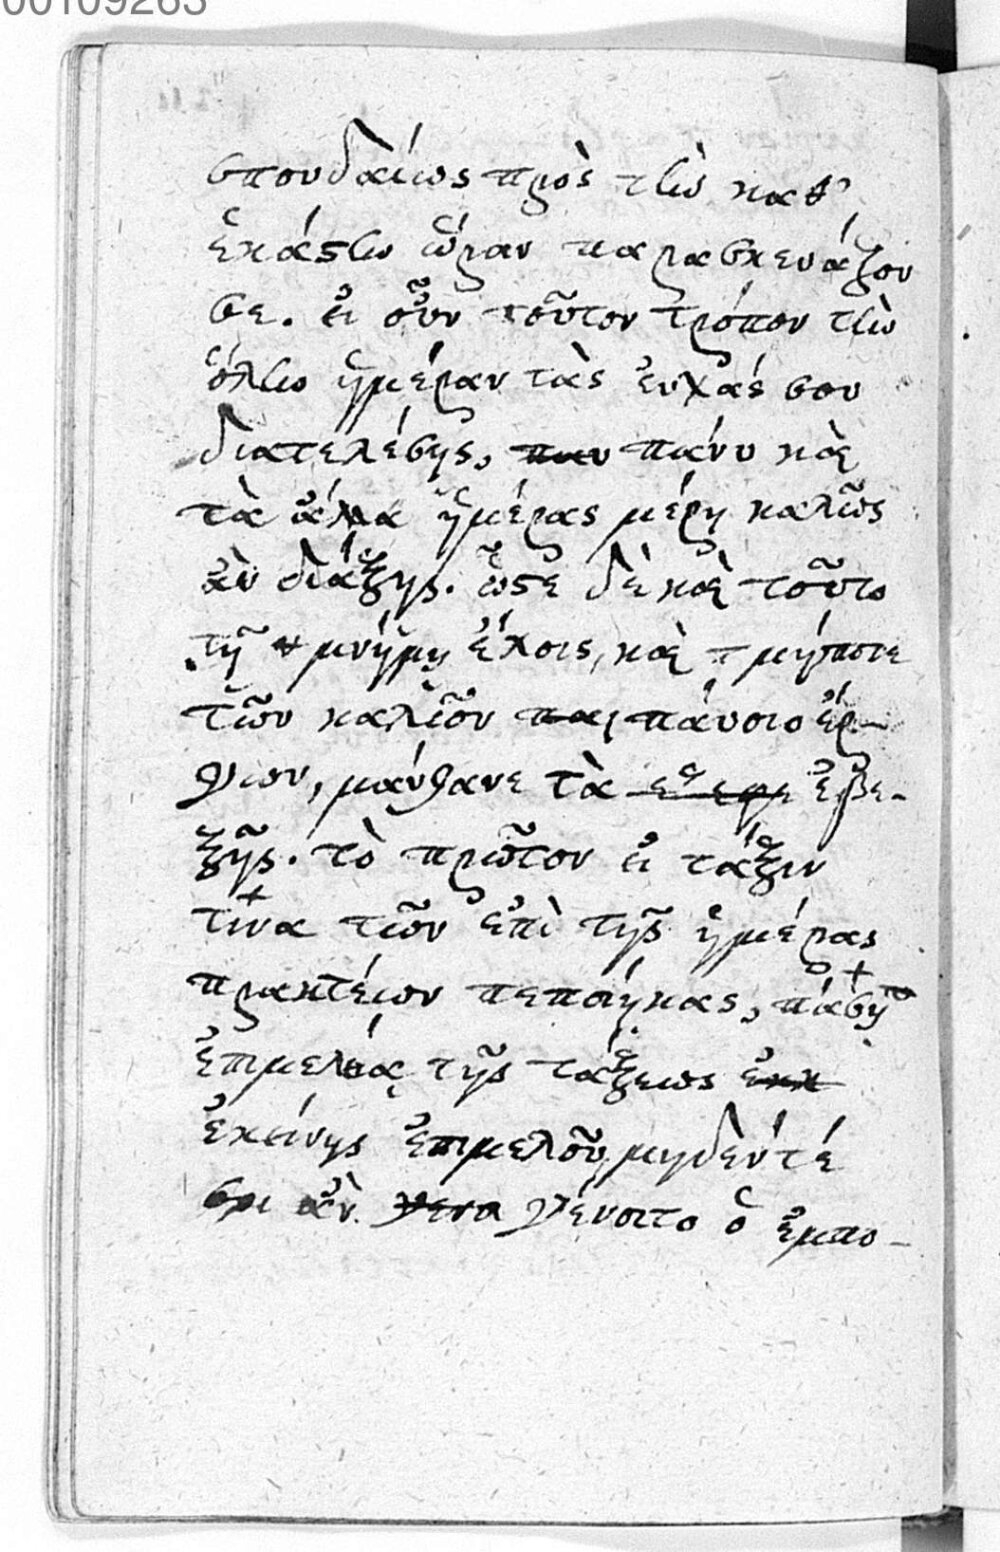 00109263
σπουδαίως πρὸς τὴν καθ'
ἑκάστην ὥραν παρασκευάζου
σε. εἰ οὖν τοῦτον τρόπον τὴν
ὅλην ἡμέραν τὰς εὐχάς σου
διατελέσῃς, παν πάνυ καὶ
τὰ ἄλλα ἡμέρας μέρη καλῶς
ἂν διάξῃς. ὥστε δὲ καὶ τοῦτο
τῇ μνήμῃ ἔχοις, καὶ μήποτε
τῶν καλῶν παυ παύσιο ἔρ-
γων, μάνθανε τὰ ἐφε-
ξῆς. τὸ πρῶτον εἰ τάξιν
τίνα τῶν ἐπὶ τῆς ἡμέρας
πρακτέων πεποίηκας, πάσῃ
ἐπιμελείᾳ τῆς τάξεως ἐκε
ἐκείνης ἐπιμελοῦ, μηδέν τέ
σοι ἂν γενο γένοιτο ὁ ἐμπο-